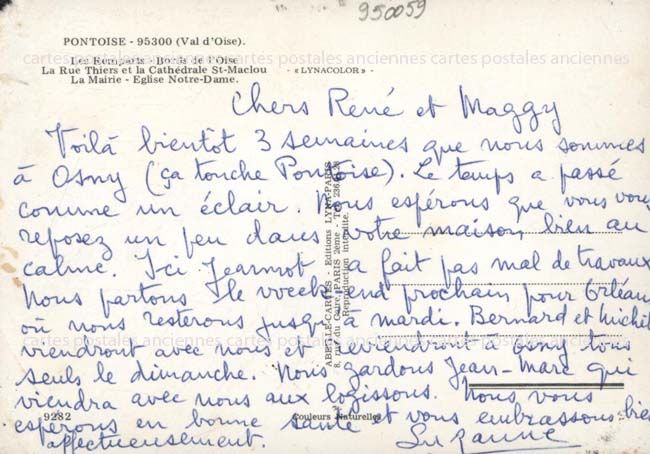 950059
PONTOISE - 95300 (Val d'Oise).
Les Remparts - Bords de l'Oise
La Rue Thiers et la Cathédrale St-Maclou
La Mairie - Eglise Notre-Dame.
- «LYNACOLOR» -
cartes postales anciennes cartes postales anciennes cartes postales anciennes
Chers René et Maggy
Voilà bientôt 3 semaines que nous sommes
à Osny (ça touche Pontoise). Le temps a passé
comme un éclair. Nous espérons que vous vous
reposez un peu dans votre maison, bien au
calme. Ici Jeannot a fait pas mal de travaux
Nous partons le week end prochain pour Orléans
où nous resterons jusqu'à mardi. Bernard et Michel
viendront avec nous et reviendront à Osny tous
seuls le dimanche. Nous gardons Jean-Marc qui
viendra avec nous aux
Nous vous
espérons en bonne santé et vous embrassons bien
affectueusement.
Suzanne
ABEILLE-CARTES - Editions LYNA-PARIS
8, rue du Caire, PARIS 2ème - Tél.
Reproduction interdite.
9282
Couleurs Naturelles